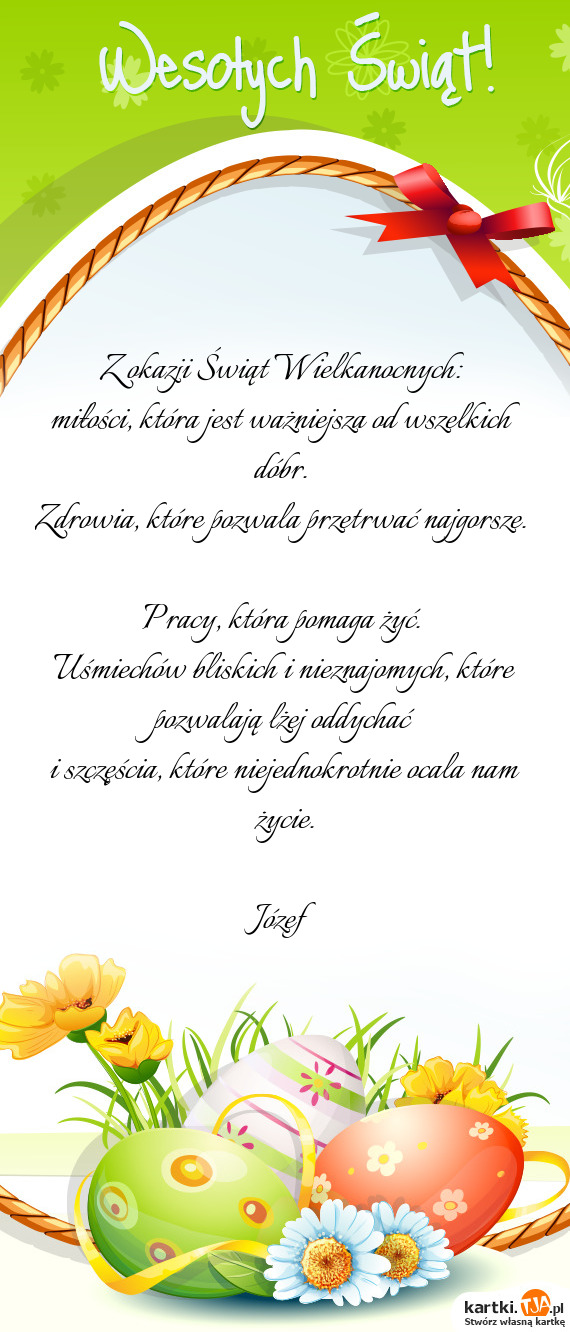 Wesołych Świąt!
Z okazji Świąt Wielkanocnych:
miłości, która jest ważniejsza od wszelkich
dóbr.
Zdrowia, które pozwala przetrwać najgorsze.
Pracy, która pomaga żyć.
Uśmiechów bliskich i nieznajomych, które
pozwalają lżej oddychać
i szczęścia, które niejednokrotnie ocala nam
życie.
Józef
kartki.TJA.pl
Stwórz własną kartkę